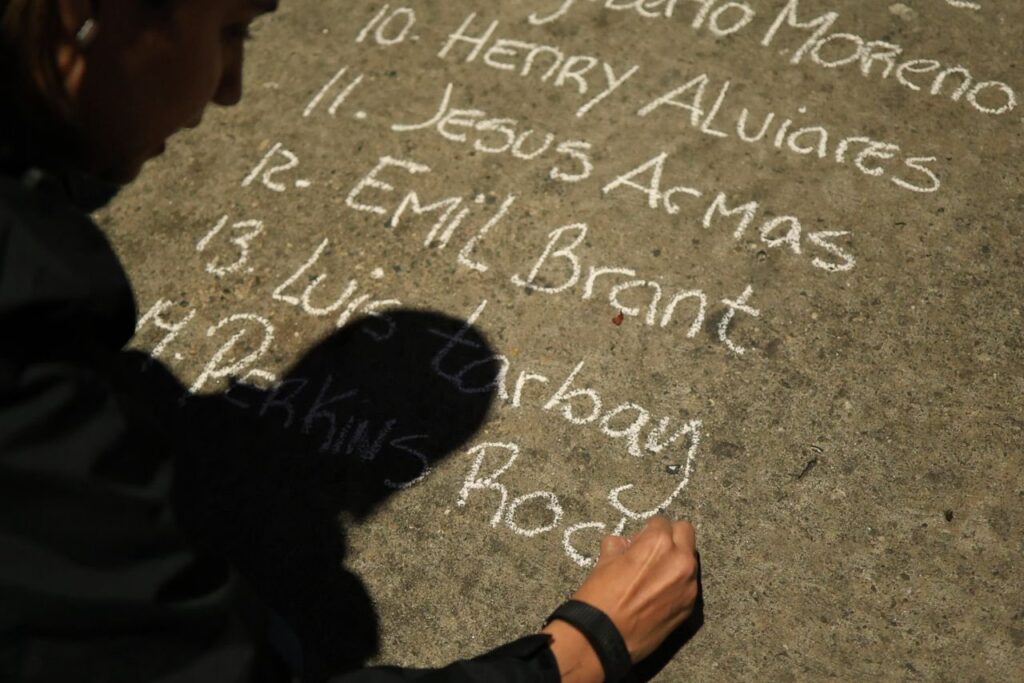 Moreno
10. HENRY ALviares
11. Jesus Armas
12. EMiL Brant
13. Luis tarbay
14. PerKiNS Rod